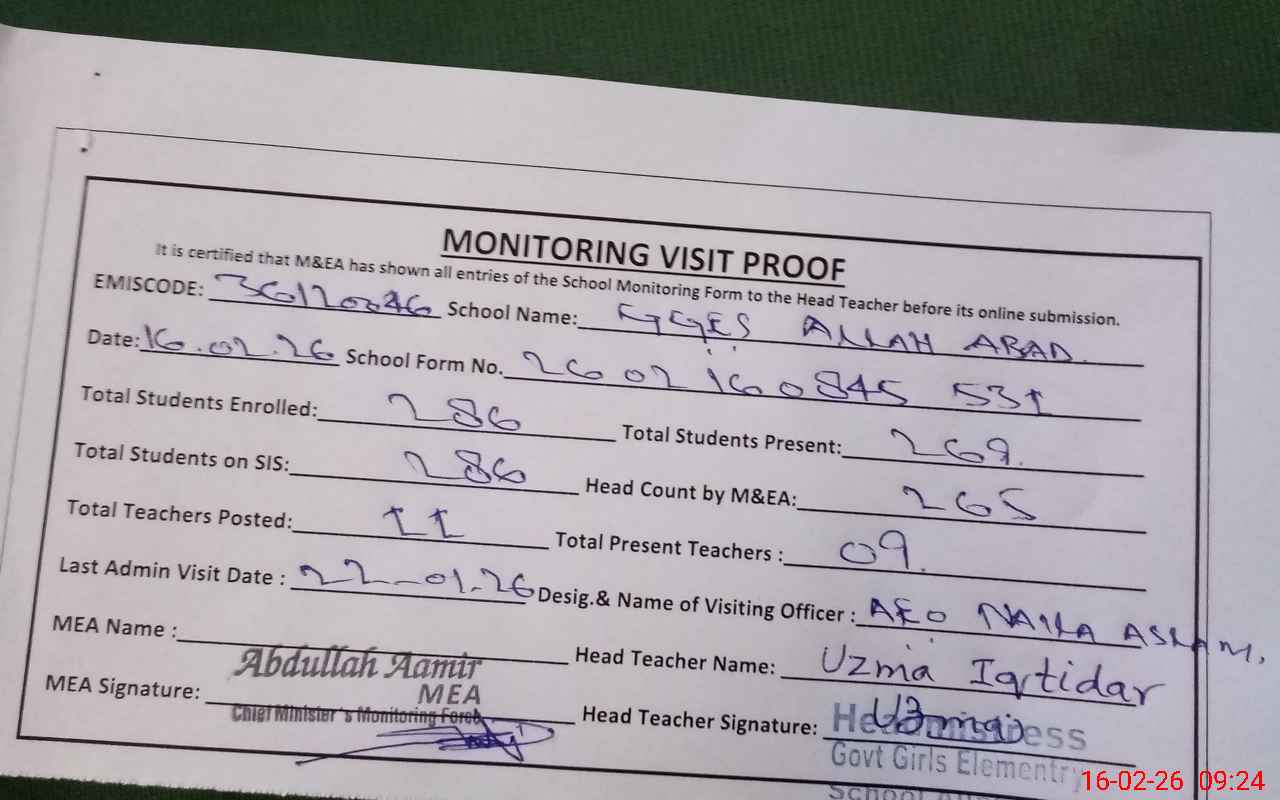 MONITORING VISIT PROOF
It is certified that M&EA has shown all entries of the School Monitoring Form to the Head Teacher before its online submission.
EMISCODE: 36120046 School Name: GGES ALLAH ABAD.
Date: 16.02.26 School Form No. 26 02 16 0845 531
Total Students Enrolled: 286 Total Students Present: 269.
Total Students on SIS: 286 Head Count by M&EA: 265
Total Teachers Posted: 11 Total Present Teachers : 09.
Last Admin Visit Date : 22-01.26 Desig.& Name of Visiting Officer : AEO NAILA ASLAM.
MEA Name : Head Teacher Name: Uzma Iqtidar
Abdullah Aamir
MEA
MEA Signature: Chief Minister's Monitoring Force Head Teacher Signature: Uzma
Headmistress
Govt Girls Elementry
School
16-02-26 09:24